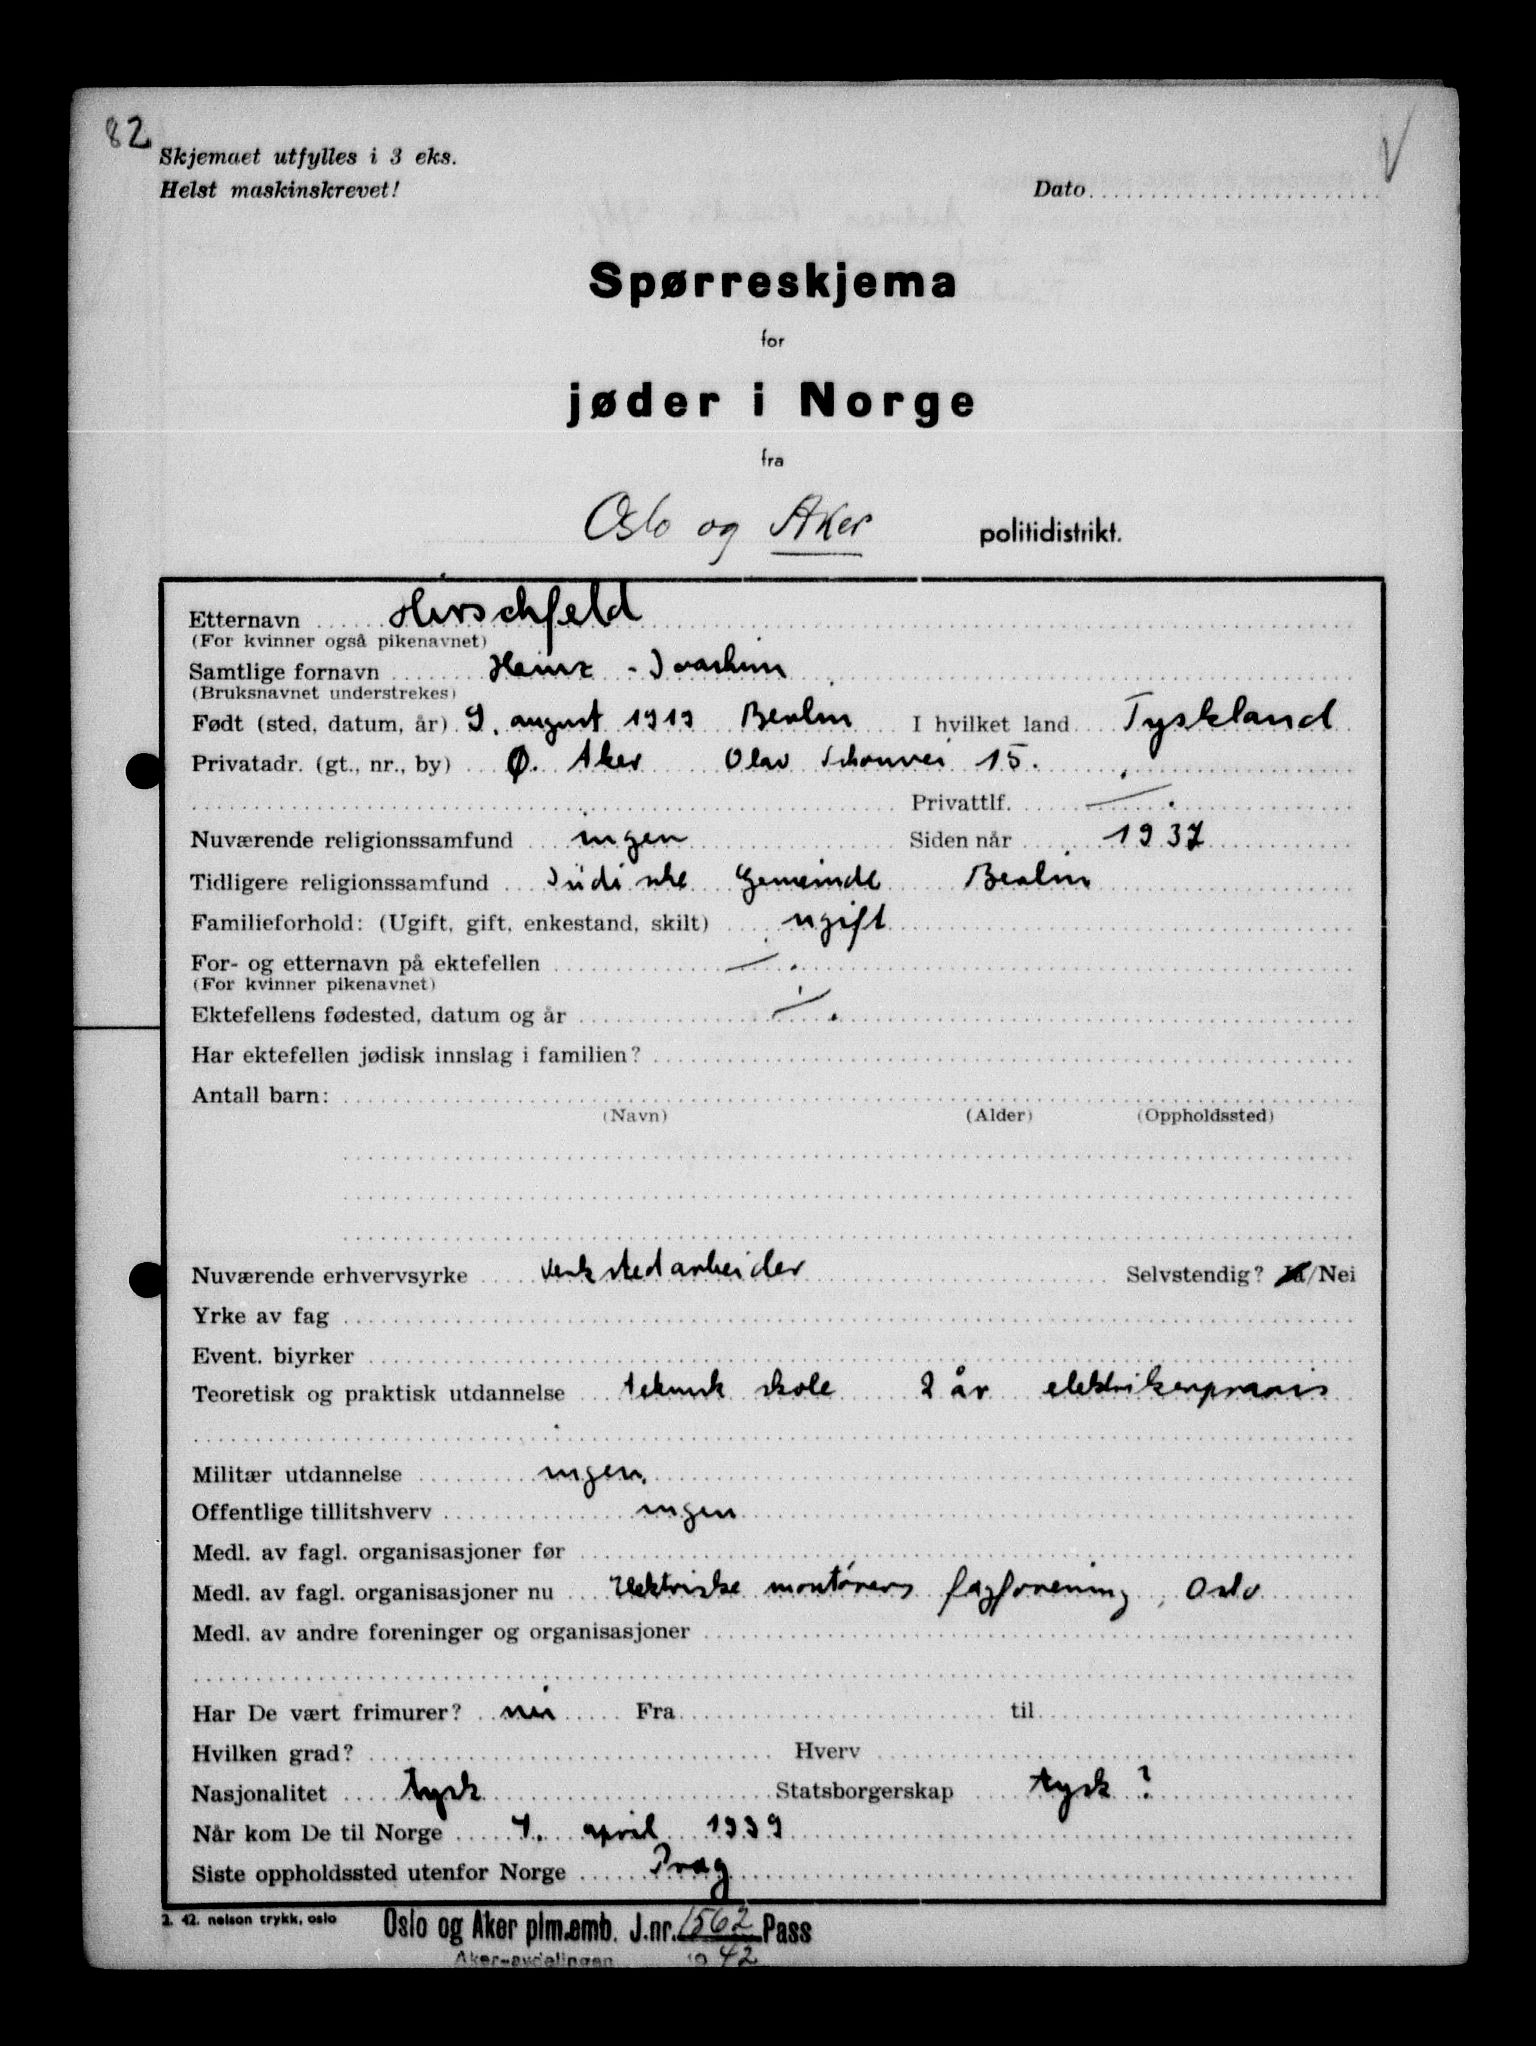 82
Skjemaet utfylles i 3 eks.
Helst maskinskrevet!
Dato
Spørreskjema
for
jøder i Norge
fra
Oslo og Aker politidistrikt.
Etternavn Hirschfeld
(For kvinner også pikenavnet)
Samtlige fornavn Heinz - Joachim
(Bruksnavnet understrekes)
Født (sted, datum, år) 9. august 1919 Berlin I hvilket land Tyskland
Privatadr. (gt., nr., by) Ø. Aker Olav Schouvei 15.
Privattlf. -.
Nuværende religionssamfund ingen Siden når 1937
Tidligere religionssamfund Jüdische Gemeinde Berlin
Familieforhold: (Ugift, gift, enkestand, skilt) ugift
For- og etternavn på ektefellen -.
(For kvinner pikenavnet)
Ektefellens fødested, datum og år -.
Har ektefellen jødisk innslag i familien?
Antall barn:
(Navn) (Alder) (Oppholdssted)
Nuværende erhvervsyrke verkstedarbeider Selvstendig? Ja/Nei
Yrke av fag
Event. biyrker
Teoretisk og praktisk utdannelse teknisk skole 2 år elektrikerpraxis
Militær utdannelse ingen.
Offentlige tillitshverv ingen
Medl. av fagl. organisasjoner før
Medl. av fagl. organisasjoner nu Elektriske montørers fagforening, Oslo
Medl. av andre foreninger og organisasjoner
Har De vært frimurer? nei Fra til
Hvilken grad? Hverv
Nasjonalitet tysk Statsborgerskap tysk?
Når kom De til Norge 4. april 1939
Siste oppholdssted utenfor Norge Prag
2. 42. nelson trykk, oslo
Oslo og Aker plm.emb. J.nr. 1562 Pass
Aker-avdelingen 19 42